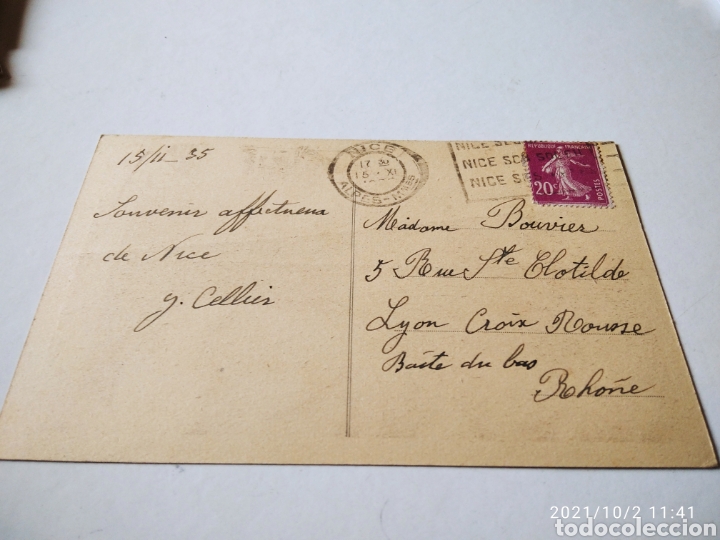 15/11 35
NICE
17 30
15 - XI
ALPES-Mmes
NICE
NICE
NICE
REPUBLIQUE FRANÇAISE
20c
POSTES
Souvenir affectueux
de Nice
y. Cellier
Madame Bouvier
5 Rue Ste Clotilde
Lyon Croix Rousse
Boite du bas
Rhône
2021/10/2 11:41
todocoleccion